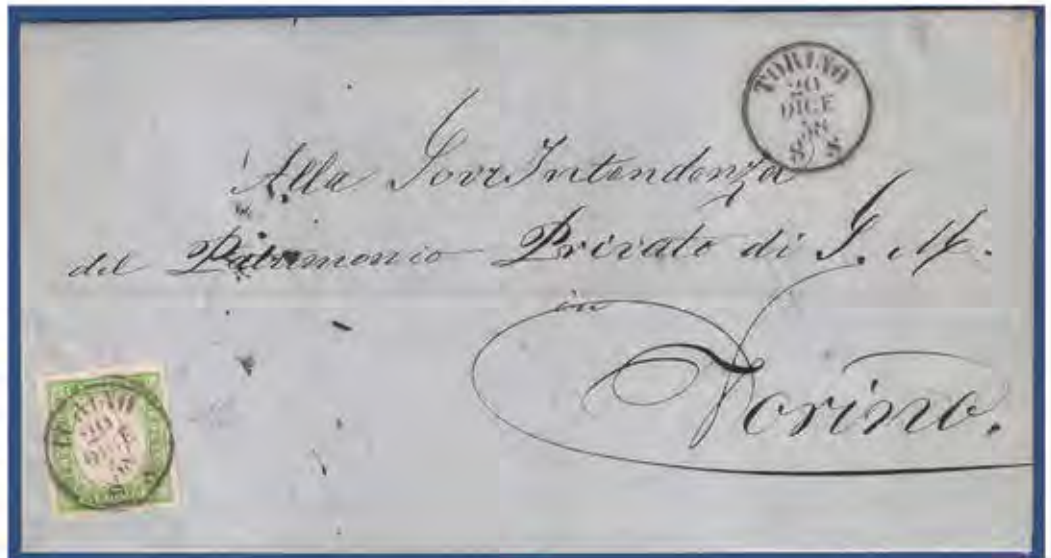 TORINO
20
DICE
58
8 S
Alla Sovr Intendenza
del Patrimonio Privato di S. M.
in
Torino.
TORINO
20
DICE
58
8 S